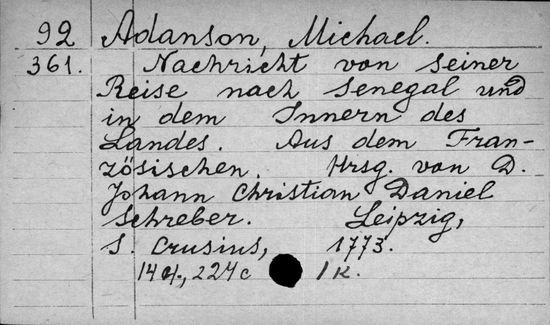 92 Adanson, Michael.
361. Nachricht von seiner
Reise nach Senegal und
in dem Innern des
Landes. Aus dem Fran-
zösischen. Hrsg. von D.
Johann Christian Daniel
Schreber. Leipzig,
S. Crusius, 1773.
14 , 224 c 1 K.